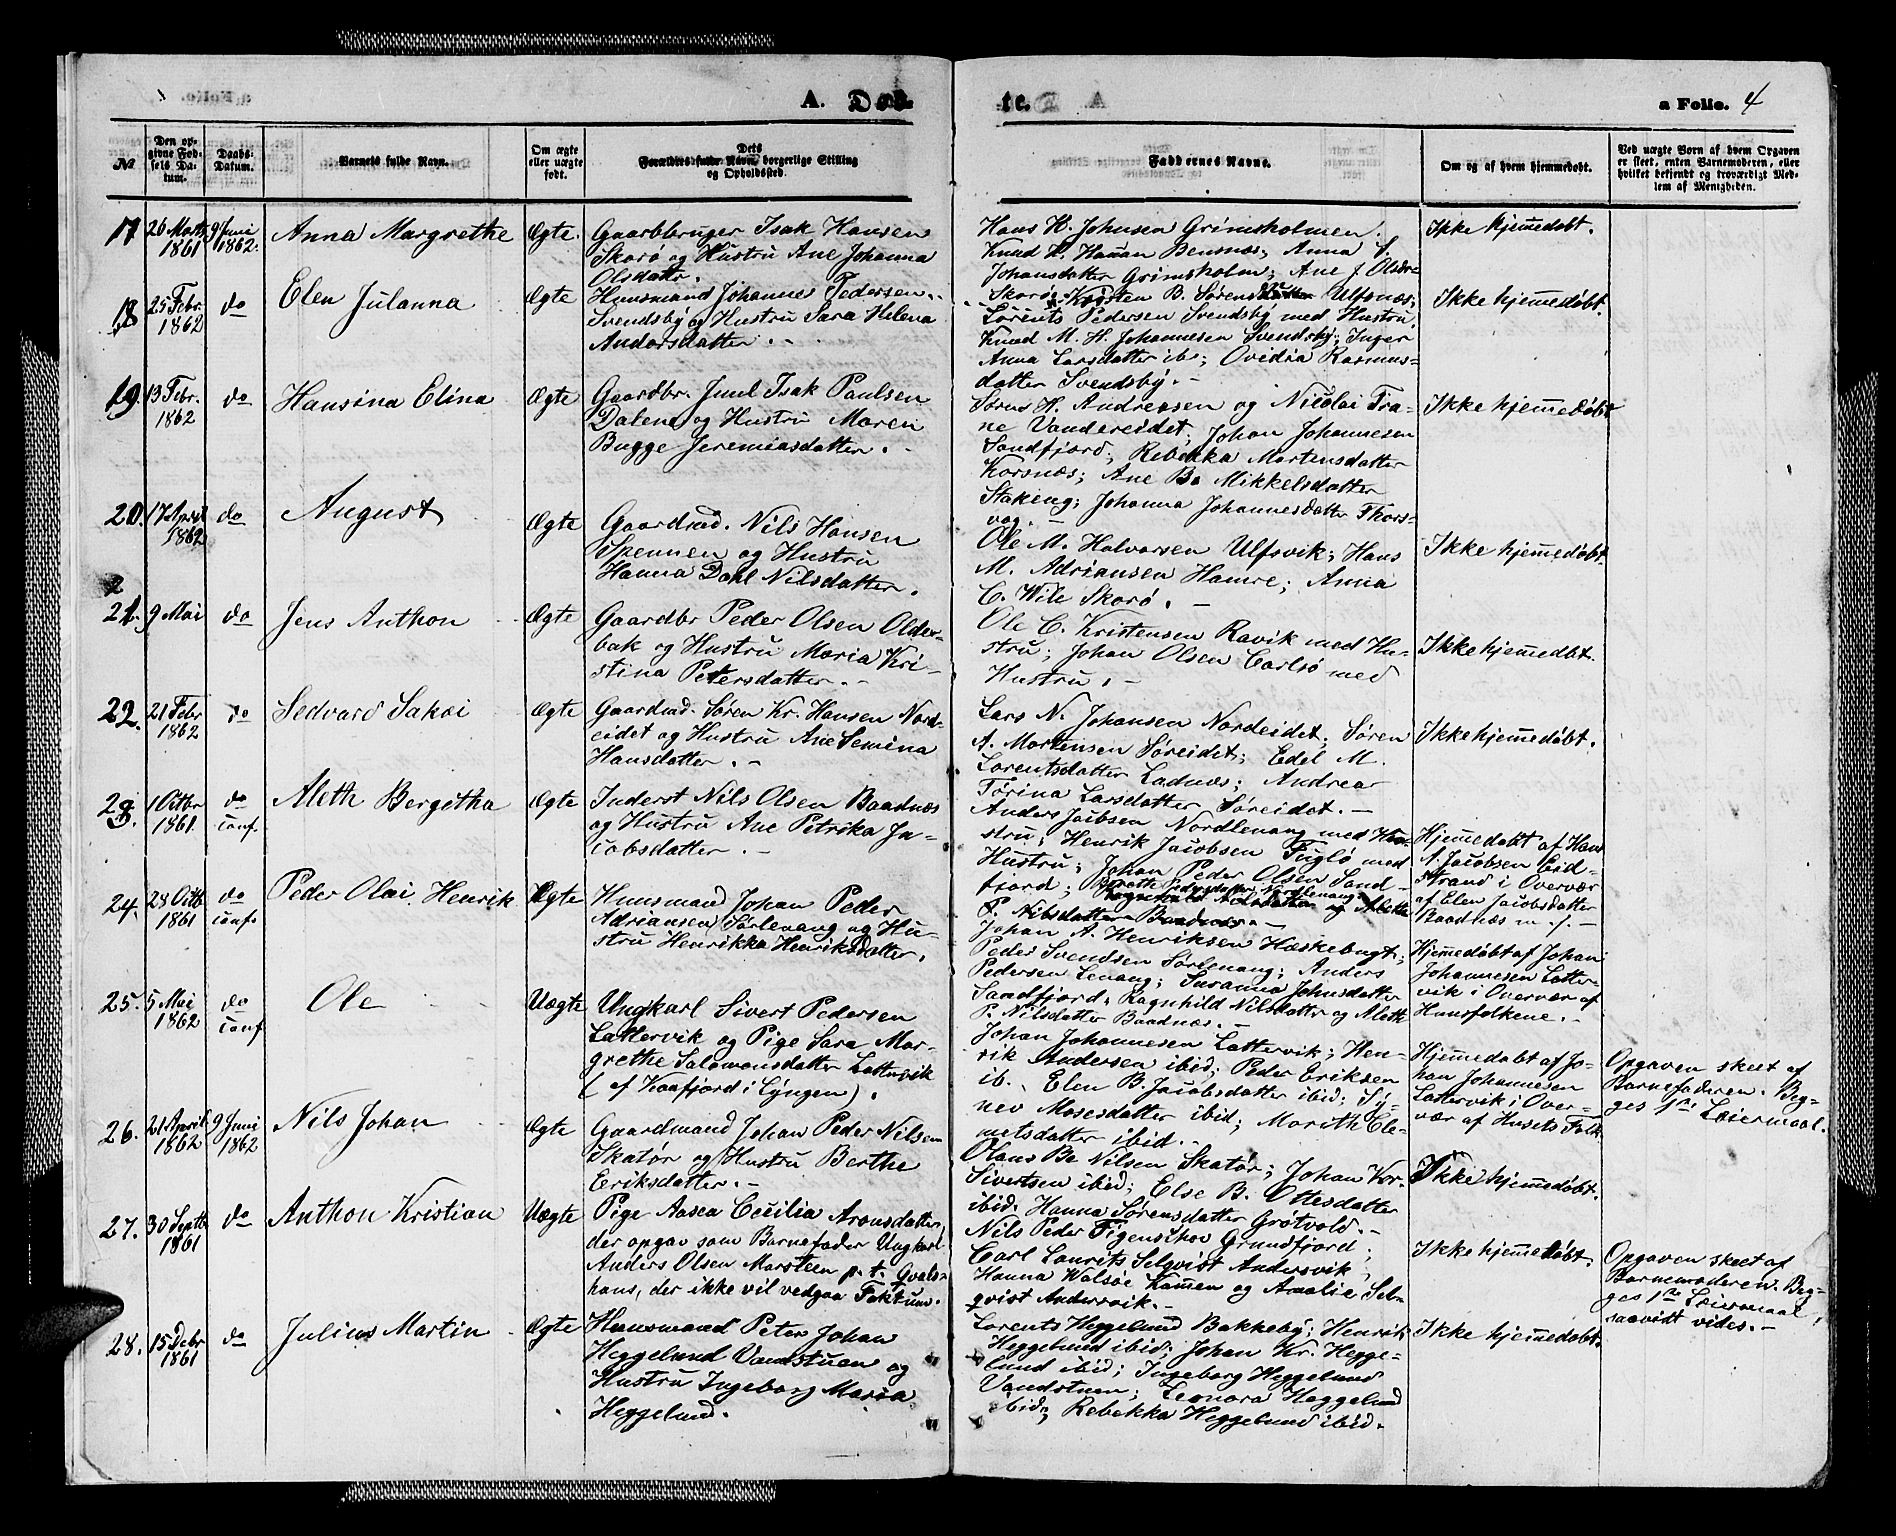 A. Døb-
te.
a Folio. 4
№
Den op-
givne Fød-
sels Da-
tum.
Daabs-
Datum.
Barnets fulde Navn.
Om ægte
eller uægte
født.
Dets
Forældres fulde Navn, borgerlige Stilling
og Opholdssted.
Faddernes Navne.
Om og af hvem hjemmedøbt.
Ved uægte Børn af hvem Opgaven
er skeet, enten Barnemoderen, eller
hvilket bekjendt og troværdigt Med-
lem af Menigheden.
17
26 Marts
1861
9 Juni
1862.
Anna Margrethe
Ægte.
Gaardbruger Isak Hansen
Skorø og Hustru Ane Johanna
Olsdattr.
Hans H. Johnsen Grimsholmen.
Knud H. Hansen Bensnæs; Anna J.
Johansdatter Grimsholm; Ane J. Olsdr
Skorø
Ikke hjemmedøbt.
18
25 Febr.
1862
do
Elen Julanna
Ægte
Huusmand Johannes Pedersen
Svendsby og Hustru Sara Helena
Andorsdatter. -
Karsten B. Sørens Ulfsnæs;
Lorents Pedersen Svendsby med Hustru.
Knud M. H. Johannesen Svendsby; Inger
Anna Larsdatter ib.; Ovidia Rasmus-
datter Svendsby. -
Ikke hjemmedøbt.
19.
13 Febr.
1862
do
Hansina Elina
Ægte
Gaardbr. Juul Isak Paulsen
Dalen og Hustru Maren
Bugge Jeremiasdatter. -
Søren H. Andreasen og Nicolai Tra-
ne Vandereidet; Johan Johannesen
Sandfjord; Rebekka Mortensdatter
Korsnæs; Ane B. Mikkelsdatter
Stakeng; Johanna Johannesdatter Thors-
vaag. -
Ikke hjemmedøbt
20.
17 April
1862
do
August
Ægte
Gaardmd. Nils Hansen
Spennen og Hustru
Hanna Dahl Nilsdatter.
Ole M. Halvorsen Ulfsvik; Hans
M. Adriansen Hamre; Anna
C. Wile Skorø. -
Ikke hjemmedøbt.
21.
9 Mai
do
Jens Anthon
Ægte
Gaardbr Peder Olsen Older-
bak og Hustru Maria Kri-
stina Petersdatter. -
Ole C. Kristensen Ravik med Hu-
stru; Johan Olsen Carlsø med
Hustru. -
Ikke hjemmedøbt.
22.
21 Febr
1862
do
Sedvard Sakæi
Ægte
Gaardmd. Søren Kr. Hansen Nord-
eidet og Hustru Ane Semina
Hansdatter. -
Lars N. Johansen Nordeidet; Søren
A. Mortensen Søreidet; Edel M.
Lorentsdatter Ladnæs; Andrea
Tørina Larsdatter Søreidet. -
Ikke hjemmedøbt.
23.
1 Octbr
1861.
do
conf.
Aleth Bergitha
Ægte
Inderst Nils Olsen Baadnæs
og Hustru Ane Petrika Ja-
cobsdatter. -
Anders Jacobsen Nordlenang med Hu-
stru; Henrik Jacobsen Fuglø med
Hustru; Johan Peder Olsen Sand-
fjord;
P. Nilsdatter Baadnæs. -
Hjemmedøbt af Hans
A. Jacobsen Eid-
strand i Overvær
af Elen Jacobsdatter
Baadnæs m. f. -
24.
28 Octb.
1861
do
conf.
Peder Olai Henrik
Ægte
Huusmand Johan Peder
Adriansen Sørlenang og Hu-
stru Henrikka Henriksdatter.
Johan A. Henriksen Hæskebugt;
Peder Svendsen Sørlenang; Anders
Pedersen Lenang; Susanna Johnsdatter
Sandfjord; Ragnhild Nilsdatter og Aleth
P. Nilsdatter Baadnæs. -
Hjemmedøbt af Johan
Johannesen Latter-
vik i Overvær af
Huusfolkene. -
25.
5 Mai
1862
do
conf
Ole
Uægte
Ungkarl Sivert Pedersen
Lattervik og Pige Sara Mar-
grethe Salomonsdatter Lattervik
(af Kaafjord i Lyngen).
Johan Johannesen Lattervik; Hen-
rik Andersen ibid; Peder Eriksen
ib. Elen B. Jacobsdatter ibid; Si-
nev Mosesdatter ibid; Marith Cle-
metsdatter ibid. -
Hjemmedøbt af Jo-
han Johannesen
Lattervik i Over-
vær af Husets Folk.
Opgaven skeet af
Barnefaderen. Beg-
ges 1ste Leiermaal.
26.
21 April
1862
9 Juni
1862
Nils Johan
Ægte
Gaardmand Johan Peder Nilsen
Skatør og Hustru Berthe
Eriksdatter. -
Olaus Be Nilsen Skatør; Johan Kor.
Sivertsen ibid; Else B. Ottesdatter
ibid. Hanna Sørensdatter Grøtvold. -
Ikke hjemmedøbt.
27.
30 Septb
1861
do
Anthon Kristian
Uægte
Pige Aasea Cecilia Aronsdatter,
der opgav som Barnefader Ungkarl
Anders Olsen Marsteen p. t. Gvals-
haus, der ikke vil vedgaa Faktum.
Nils Peder Figenschov Grundfjord;
Carl Laurits Selqvist Andersvik;
Hanna Walsøe Kammen og Amalie Sel-
qvist Andersvik. -
Ikke hjemmedøbt.
Opgaven skeet af
Barnemoderen. Beg-
ges 1ste Leiermaal,
saavidt vides. -
28.
15 Debr
1861
do
Julius Martin
Ægte
Huusmand Peter Johan
Heggelund Vandstuen og
Hustru Ingeborg Maria
Heggelund.
Lorents Heggelund Bakkeby; Henrik
Heggelund ibid; Johan Kr. Hegge-
lund ibid; Ingeborg Heggelund
Vandstuen; Leonora Heggelund
ibid; Rebekka Heggelund ibid.
Ikke hjemmedøbt.